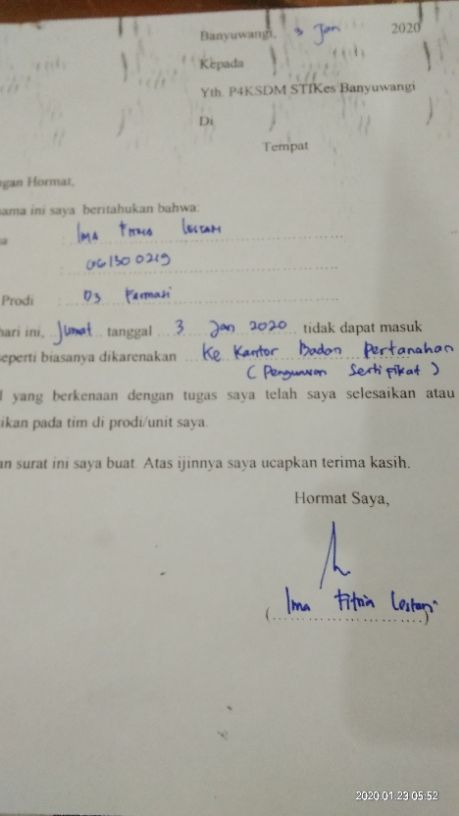 Banyuwangi, 3 Jan 2020
Kepada
Yth. P4KSDM STIKes Banyuwangi
Di
Tempat
ngan Hormat,
ama ini saya beritahukan bahwa:
a : Ima Fitria Lestari
: 06.1300219
Prodi : D3 Farmasi
hari ini, Jumat tanggal 3 Jan 2020 tidak dapat masuk
seperti biasanya dikarenakan Ke Kantor Badan Pertanahan
(Pengurusan Sertifikat)
l yang berkenaan dengan tugas saya telah saya selesaikan atau
ikan pada tim di prodi/unit saya.
an surat ini saya buat. Atas ijinnya saya ucapkan terima kasih.
Hormat Saya,
(Ima Fitria Lestari)
2020.01.23 05:52